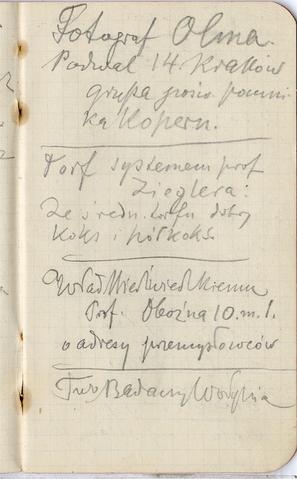 Fotograf Olma.
Podwal 14. Kraków
grupa pośw. pomni-
ka Kopern.
Torf systemem prof
Zieglera:
Ze średn. torfu dobry
koks i półkoks.
Niedźwiedzkiemu
Prof. Oboźna 10. m. 1.
o adresy przemysłowców
Tow. Badany Wołynia